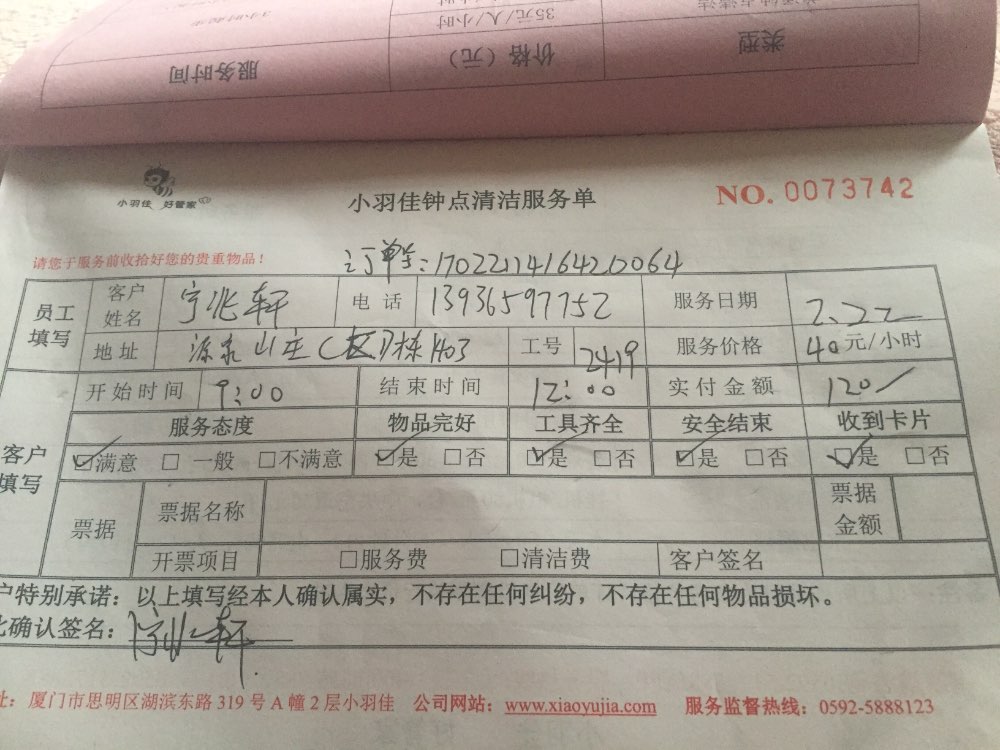 35元/人/小时
类型 价格（元） 服务时间
小羽佳 好管家
小羽佳钟点清洁服务单
NO. 0073742
请您于服务前收拾好您的贵重物品！
订单号：1702211416420064
员工填写
客户姓名 宁兆轩 电话 13936597752 服务日期 2.22
地址 源泉山庄 栋1403 工号 2419 服务价格 40元/小时
开始时间 9:00 结束时间 12:00 实付金额 120
客户填写
服务态度 物品完好 工具齐全 安全结束 收到卡片
☑满意 □一般 □不满意 ☑是 □否 ☑是 □否 ☑是 □否 ☑是 □否
票据 票据名称 票据金额
开票项目 □服务费 □清洁费 客户签名
户特别承诺：以上填写经本人确认属实，不存在任何纠纷，不存在任何物品损坏。
此确认签名：宁兆轩
址：厦门市思明区湖滨东路319号A幢2层小羽佳 公司网站：www.xiaoyujia.com 服务监督热线：0592-5888123